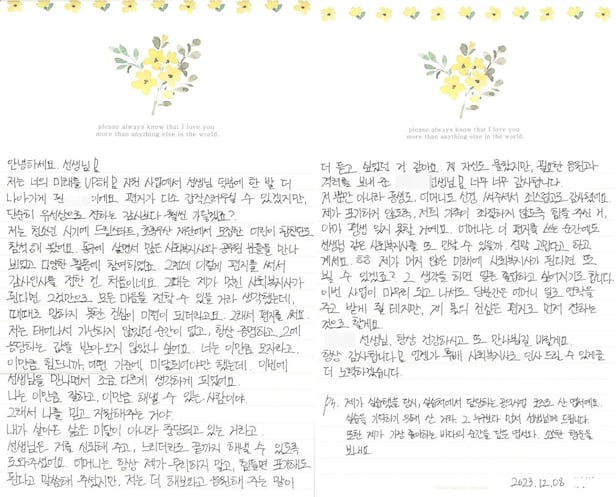 please always know that I love you
more than anything else in the world.
안녕하세요. 선생님!
저는 너의 미래를 UP해! 지원 사업에서 선생님 덕분에 한 발 더
나아가게 된 이에요. 편지가 다소 갑작스러우실 수 있겠지만,
단순히 유선상으로 전하는 감사보다 훨씬 가득겠죠?
저는 청소년 시기에 드림스타트, 초록우산 재단에서 모집한 마음이 힘찬멘토
참석하게 됐어요. 동구에 살면서 많은 사회복지사와 공무원 분들을 만나
뵈었고 다양한 활동에 참여하였죠. 그런데 이렇게 편지를 써서
감사인사를 전한 건 처음이네요. 그때는 제가 멋진 사회복지사가
된다면 그것만으로 모든 마음을 전할 수 있을 거라 생각했는데,
때때로 말하지 못한 진심이 미련이 되더라고요. 그래서 편지를 써요.
저는 태어나서 가난하지 않았던 순간이 없고, 항상 증명하고, 그에
응당하는 값을 받아오지 않았나 싶어요. 너는 이만큼 모자라고,
이만큼 힘드니까, 어떤 기준에 미달되더라만 했는데. 이번에
선생님을 만나면서 조금 다르게 생각하게 되었네요.
나는 이만큼 잘하고, 이만큼 해낼 수 있는 사람이야.
그래서 나를 믿고 지원해주는 거야.
내가 살아온 삶은 미달이 아니라 충당되고 있는 거라고.
선생님은 저를 신뢰해 주고, 느리더라도 끝까지 해낼 수 있도록
도와주셨어요. 어머니는 항상 제가 무리하지 말고, 힘들면 포기해도
된다고 말씀해 주셨지만, 저는 더 해보라고 응원해 주는 말이
please always know that I love you
more than anything else in the world.
더 듣고 싶었던 거 같아요. 제 자신도 몰랐지만, 필요한 응원과
격려를 보내 준 선생님! 너무 너무 감사합니다.
저 뿐만 아니라 동생도, 어머니도 신경 써주셔서 조심스럽고도 감사했어요.
제가 포기하지 않도록, 저희 가족이 좌절하지 않도록 힘을 주신 거,
아마 평생 잊지 못할 거예요. 어머니는 이 편지를 쓰는 순간에도
선생님 같은 사회복지사를 또 만날 수 있을까. 정말 고맙다고. 하고
계세요. ㅎㅎ 제가 머지 않은 미래에 사회복지사가 된다면 또
뵐 수 있겠죠? 그 생각을 하면 얼른 졸업하고 싶어지기도 합니다.
이번 사업이 마무리 되고 나서도 당분간은 어머니 일로 연락을
주고 받게 될 테지만, 제 몫의 진심은 편지로 먼저 전하는
것으로 할게요.
선생님, 항상 건강하시고 또 만나뵙길 바랄게요.
항상 감사합니다! 언젠가 후배 사회복지사로 인사 드릴 수 있게끔
더 노력하겠습니다.
P.S. 제가 실습했을 당시, 실습처에서 담당하는 공익사업 코너로 산 엽서예요.
실습을 기억하기 위해 산 거라, 그 누구보다 먼저 선생님께 드립니다.
또한 제가 가장 좋아하는 바다의 순간을 담은 엽서다. 소소한 행운을
보내요.
2023.12.08